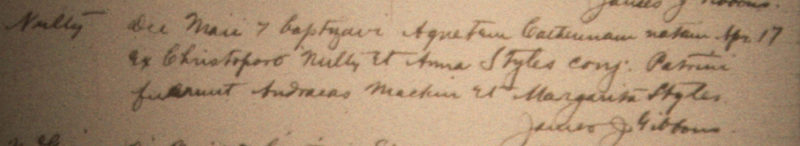 James J Gibbons.
Nulty Die Maii 7 baptizavi Agnetem Catherinam natam Apr. 17
ex Christoforo Nulty et Anna Styles conj. Patrini
fuerunt Andraeas Mackin et Margarita Styles.
James J. Gibbons.